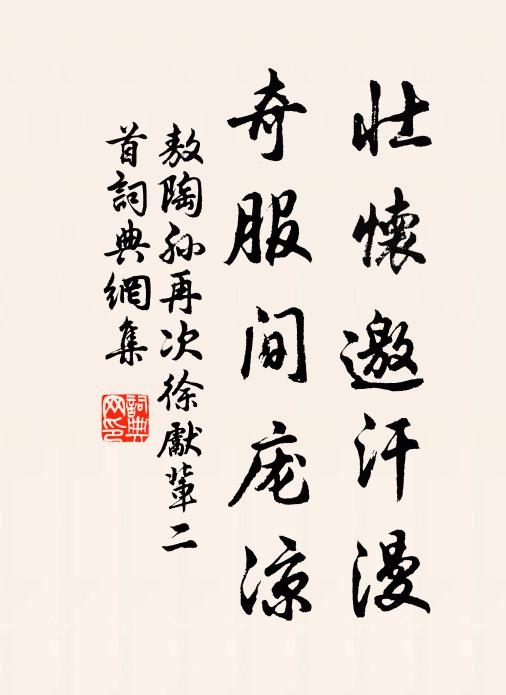 壮懷邀汗漫
奇服间庞凉
敖陶孙再次徐獻輩二
首詞典網集
詞典
网印